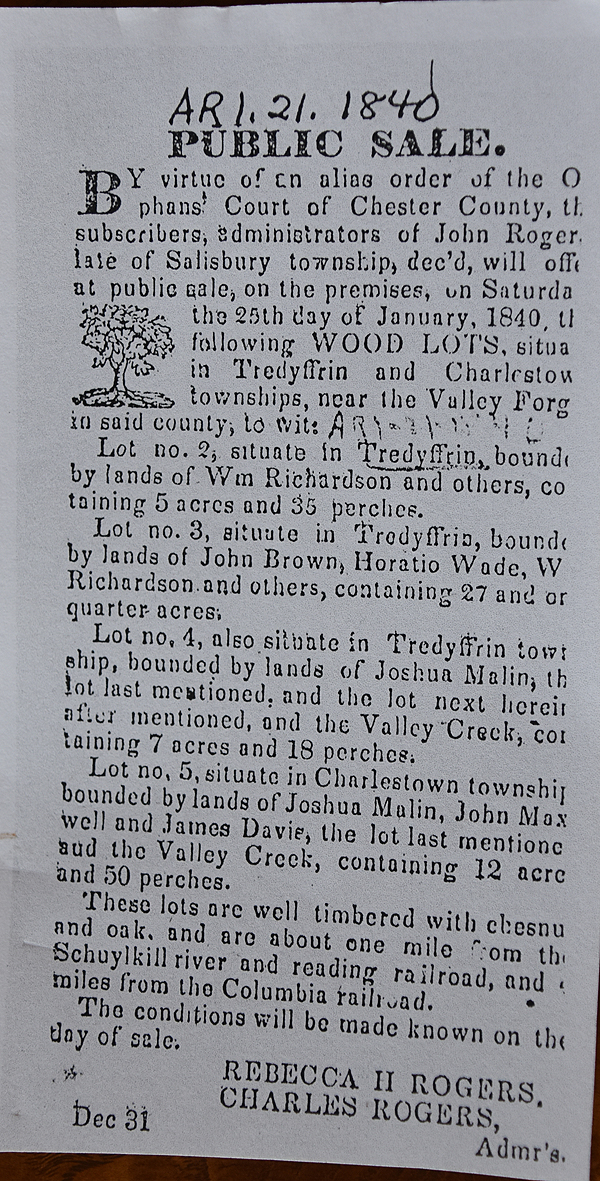 AR 1. 21. 1840
PUBLIC SALE.
BY virtue of an alias order of the O
phans' Court of Chester County, th
subscribers, administrators of John Roger
late of Salisbury township, dec'd, will offe
at public sale, on the premises, on Saturda
the 25th day of January, 1840, tl
following WOOD LOTS, situa
in Tredyffrin and Charlestow
townships, near the Valley Forg
in said county, to wit:
Lot no. 2, situate in Tredyffrin, bounde
by lands of Wm Richardson and others, co
taining 5 acres and 35 perches.
Lot no. 3, situate in Tredyffrin, bounde
by lands of John Brown, Horatio Wade, W
Richardson and others, containing 27 and or
quarter acres.
Lot no. 4, also situate in Tredyffrin town
ship, bounded by lands of Joshua Malin, th
lot last mentioned, and the lot next herein
after mentioned, and the Valley Creek, con
taining 7 acres and 18 perches.
Lot no. 5, situate in Charlestown township
bounded by lands of Joshua Malin, John Max
well and James Davis, the lot last mentione
aud the Valley Creek, containing 12 acre
and 50 perches.
These lots are well timbered with chesnu
and oak, and are about one mile from the
Schuylkill river and reading railroad, and
miles from the Columbia railroad.
The conditions will be made known on the
day of sale.
REBECCA H ROGERS.
CHARLES ROGERS,
Dec 31
Admr's.